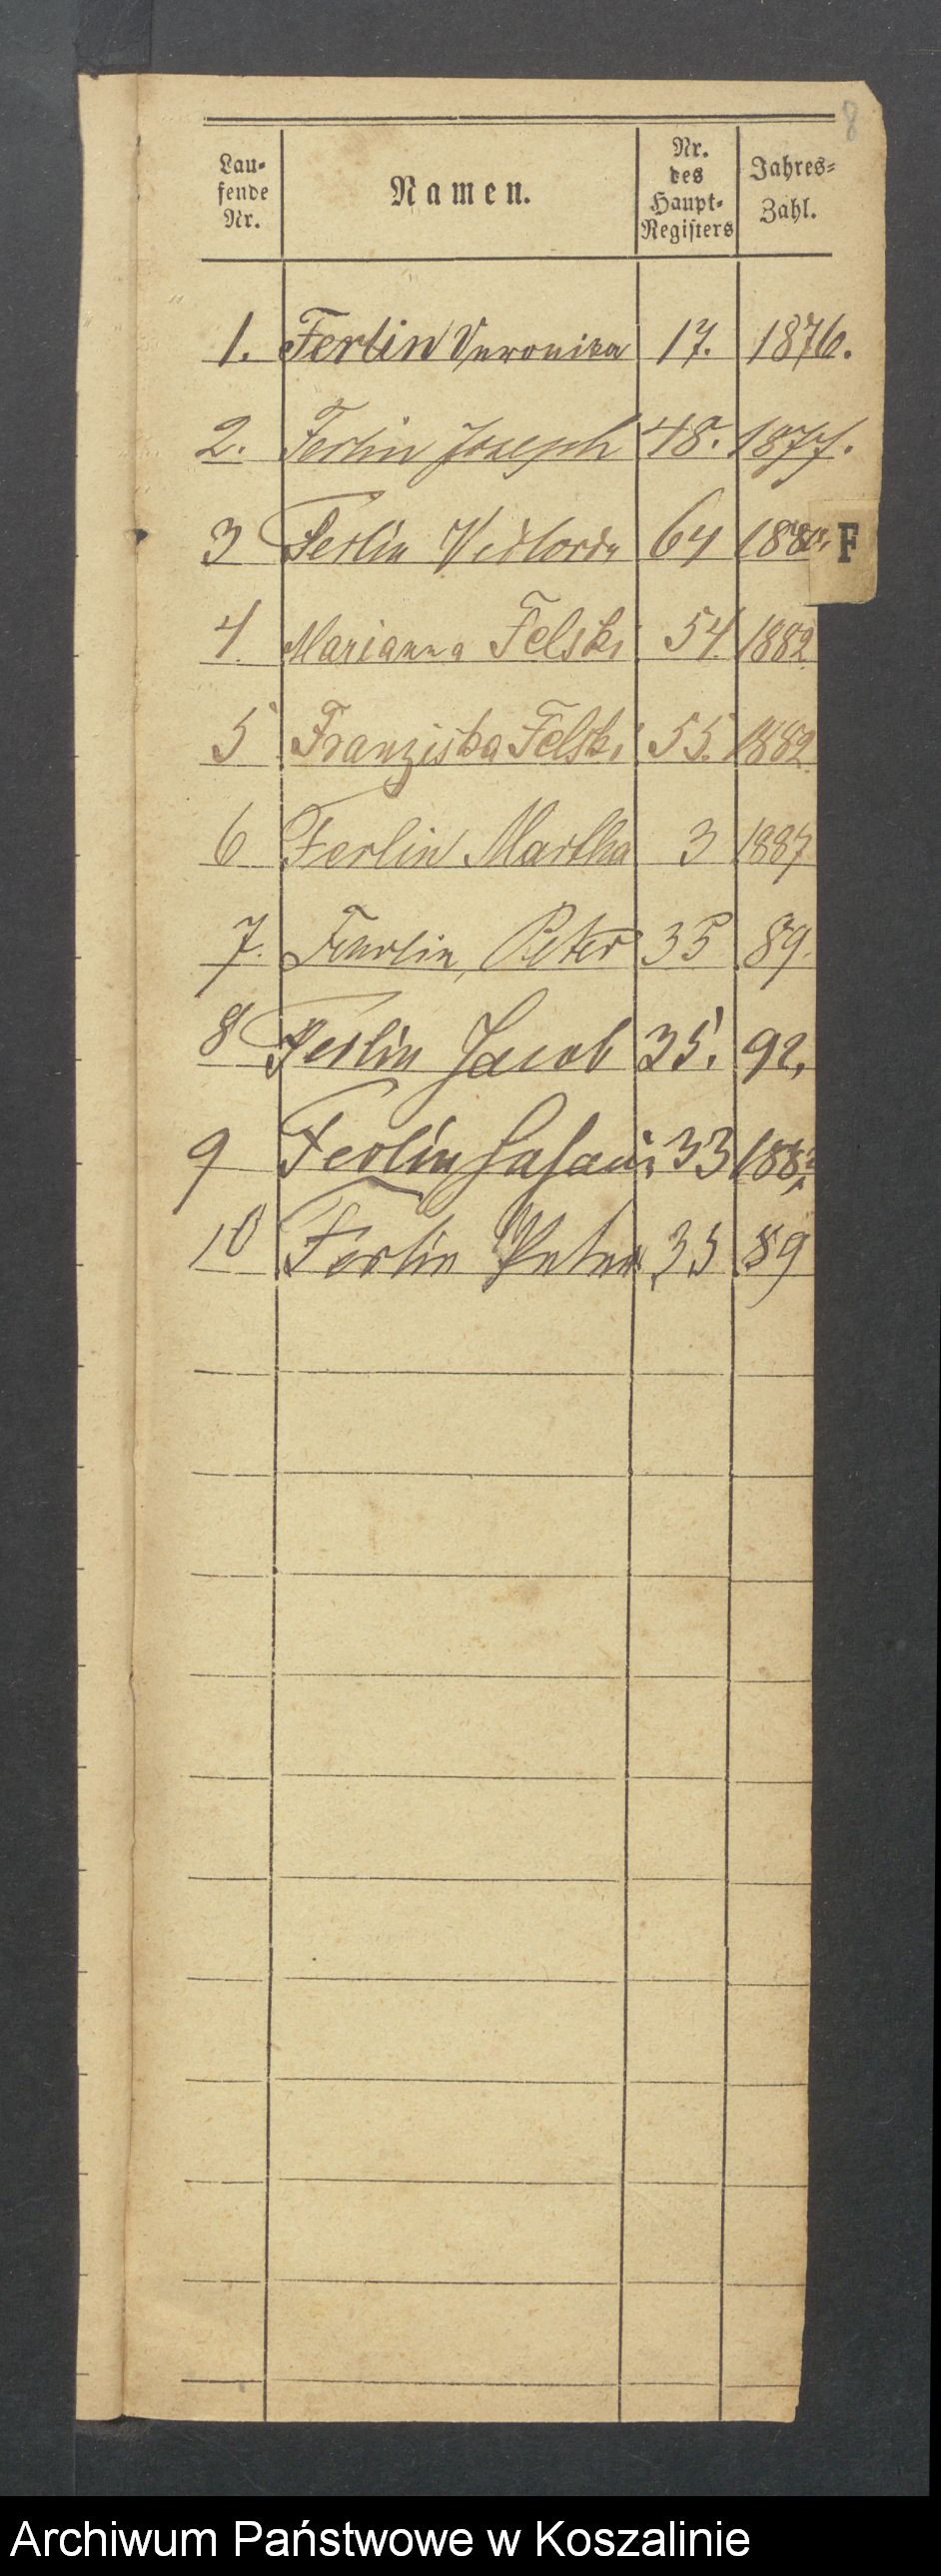 8
Lau-
fende
Nr.
Namen.
Nr.
des
Haupt-
Registers
Jahres-
Zahl.
1. Ferlin Veronika 17. 1876.
2. Ferlin Joseph 48. 1877.
3 Ferlin 64
F
4. Marianna Felski 54 1882
5 Franziska Felski 55. 1882
6 Ferlin Martha 3 1887
7. Ferlin, Peter 35 89.
8 Ferlin Jacob 35. 92.
9 Ferlin 33
10 Ferlin Peter 35 89
Archiwum Państwowe w Koszalinie